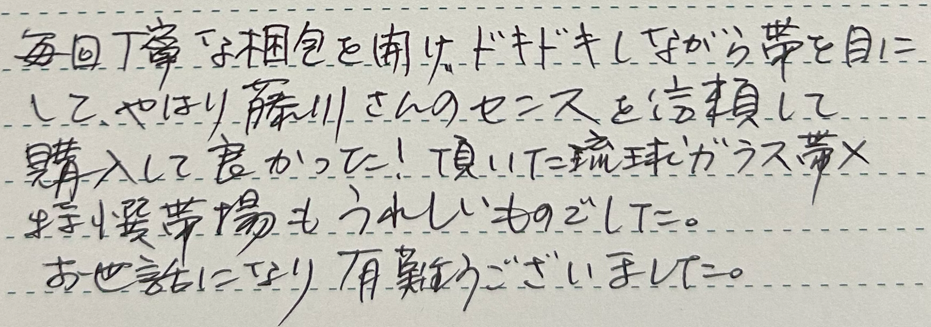 毎回丁寧な梱包を開け、ドキドキしながら帯を目に
して、やはり藤川さんのセンスを信頼して
購入して良かった！頂いた琉球ガラス帯〆
特選帯揚もうれしいものでした。
お世話になり有難うございました。